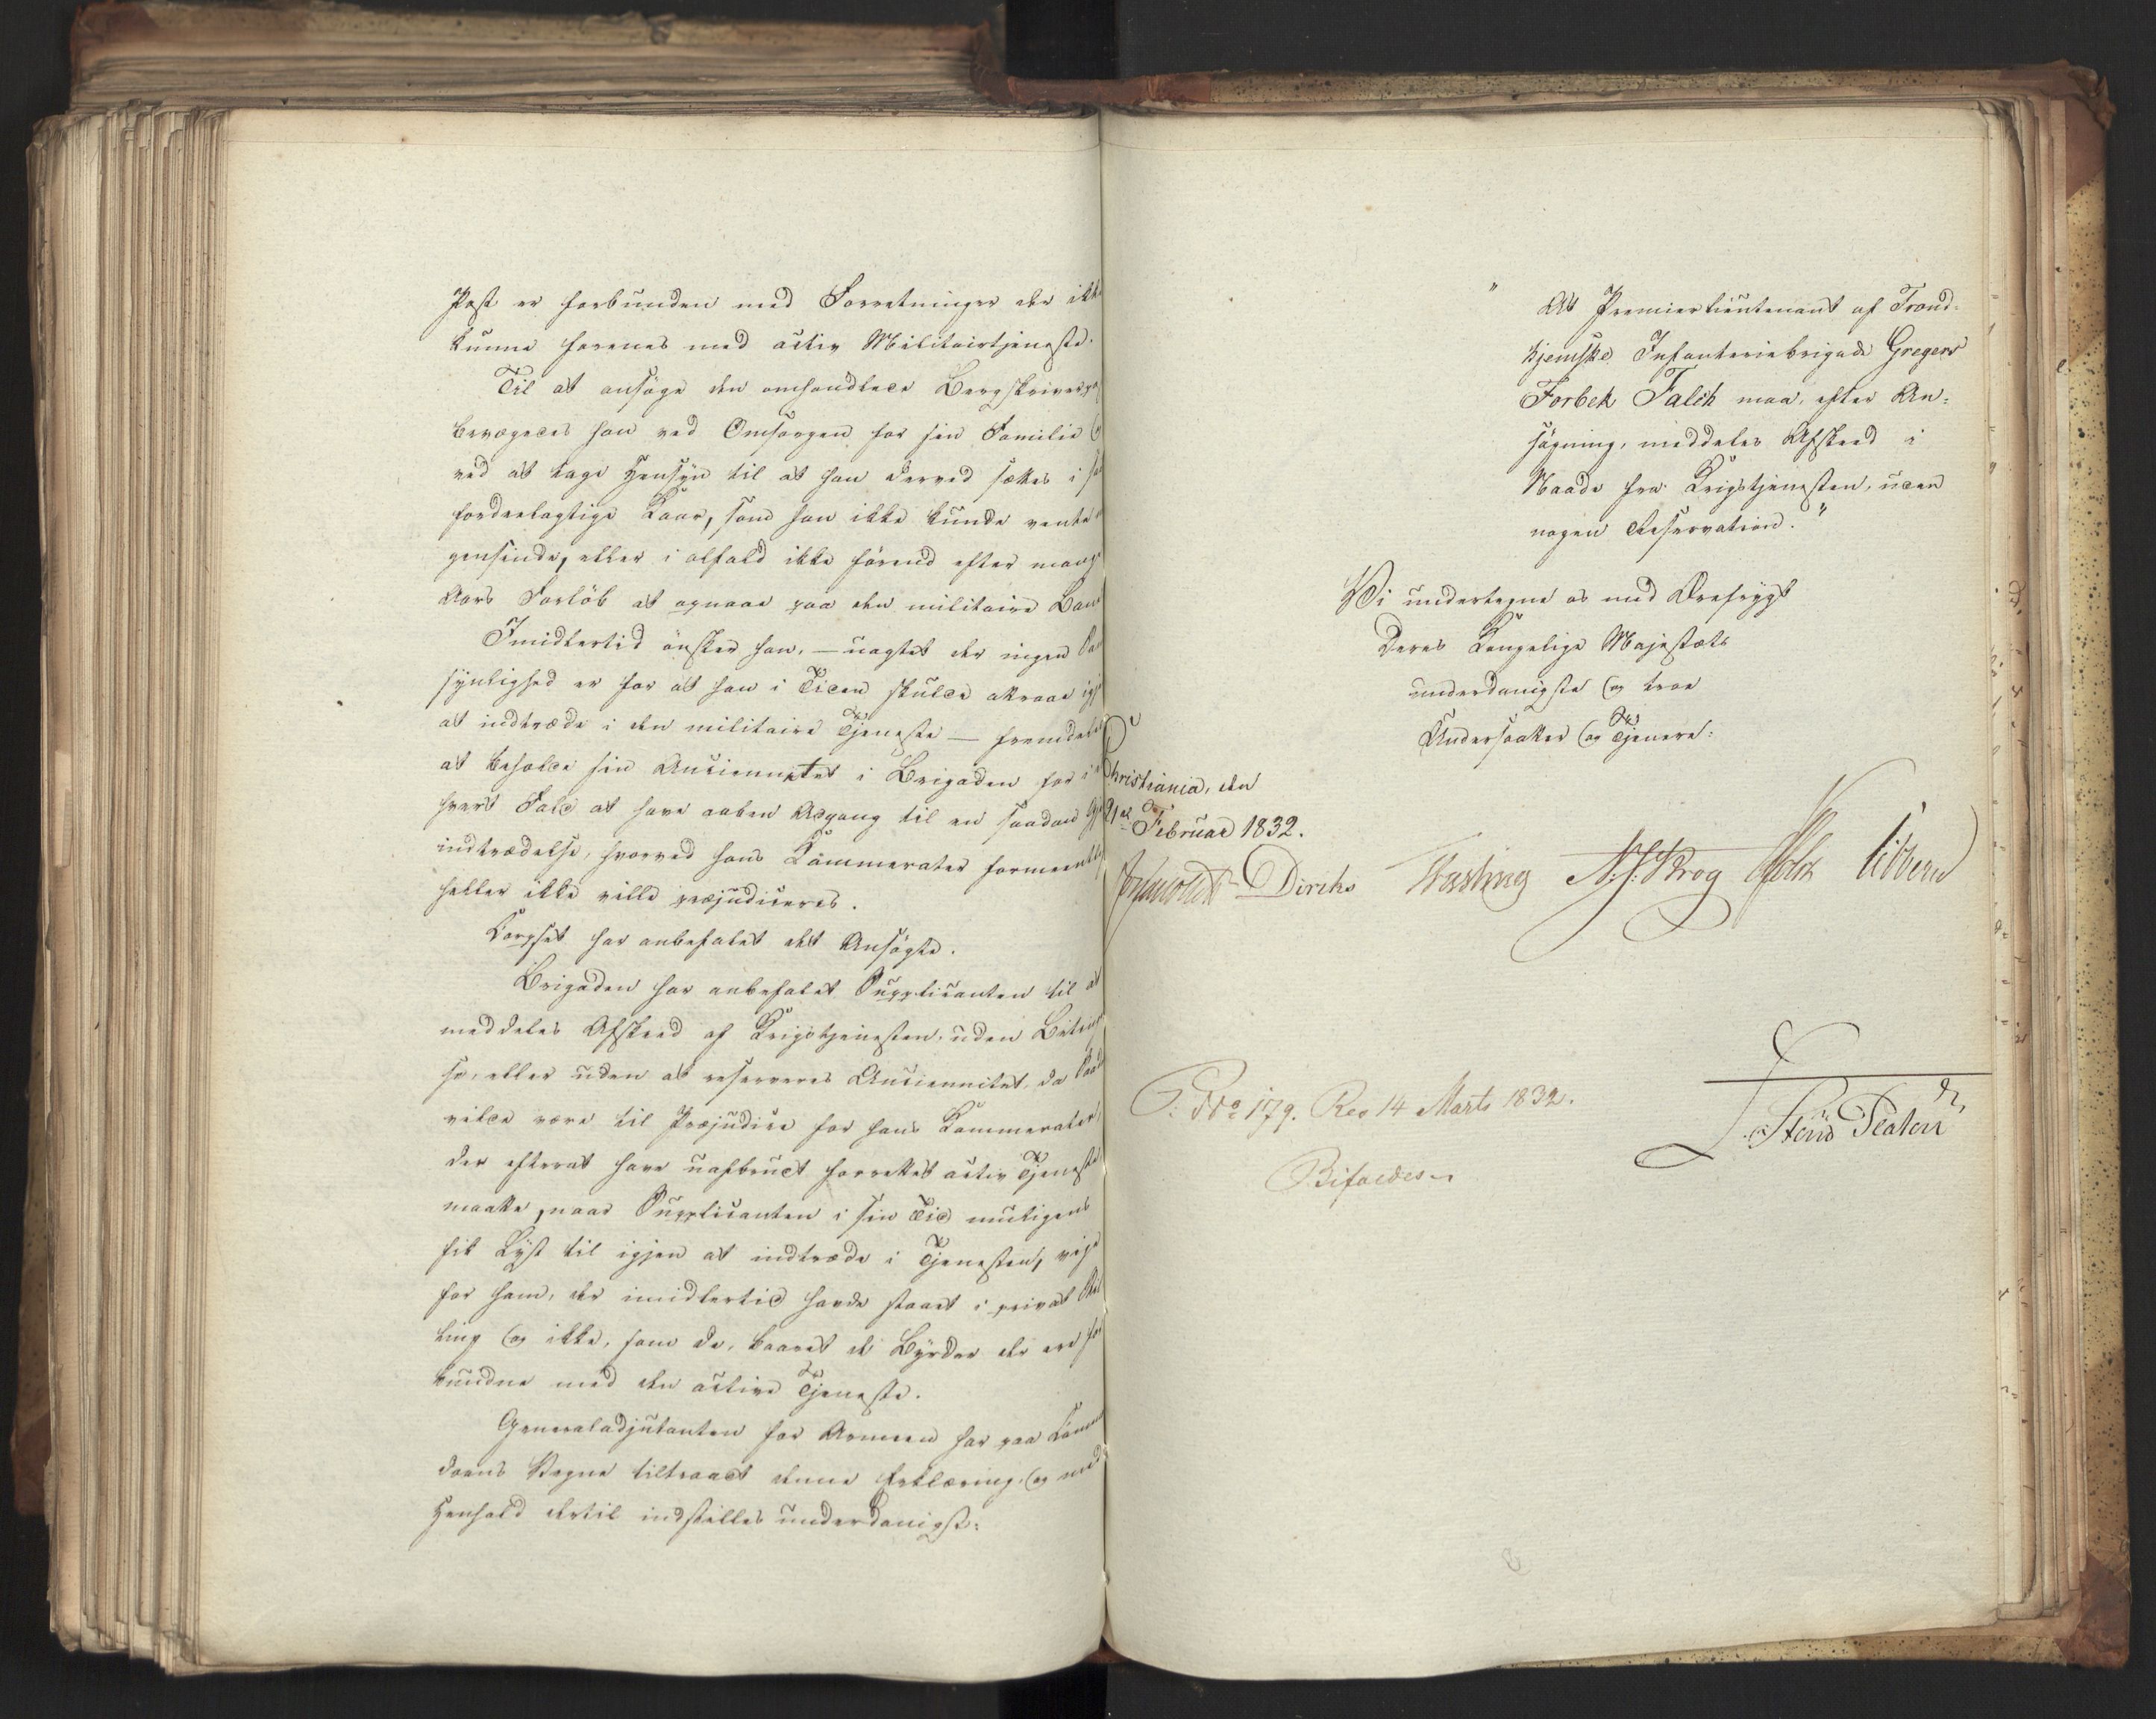 Post er forbunden med Forretninger der ikke
kunne forenes med activ Militairtjeneste.
Til at ansöge den omhandlede Bergskriver
bevægedes han ved Omsorgen for sin Familie og
ved at tage Hensyn til at han derved sættes i
fordeelagtige Kaar, som han ikke kunde vente
gensinde, eller i alfald ikke förend efter mange
Aars Forlöb at opnaae paa den militaire Bane
Imidlertid önsker han, – uagtet der ingen
synlighed er for at han i Tiden skulde attraae igjen
at indtræde i den militaire Tjeneste – fremdeles
at beholde sin Anciennitet i Brigaden for i
hvert Fald at have aaben Adgang til en saadan
indtrædelse, hvorved hans Kammerater formeentlig
heller ikke ville præjudiceres.
Korpset har anbefalet det Ansögte.
Brigaden har anbefalet Supplicanten til at
meddeles Afskeed af Krigstjenesten, uden
se, eller uden at reserveres Anciennitet, da
vilde være til Præjudice for hans Kammerater,
der efterat have uafbrudt forrettet activ Tjeneste
maatte, naar Supplicanten i sin Tid muligens
fik Lyst til igjen at indtræde i Tjenesten, vige
for ham, der imidlertid havde staaet i privat Stil
ling og ikke, som de, baaret de Byrder der ere for
bundne med den active Tjeneste.
Generaladjutanten for Armeen har paa Comman
doens Vegne tiltraadt denne Erklæring, og med
Henhold dertil indstilles underdanigst:
" At Premierlieutenant af Trond-
hjemske Infanteriebrigade Gregers
Forbek Falch maa, efter An-
sögning, meddeles Afskeed i
Naade fra Krigstjenesten, uden
nogen Reservation."
Vi undertegne os med Ærefrygt
Deres Kongelige Majestæts
underdanigste og troe
Undersaatter og Tjenere:
Christiania, den
21de Februar 1832.
Diriks Fasting N. J. Krog Holst Sibbern
P: No 179. Res 14 Marts 1832.
Bifaldes.
Platen